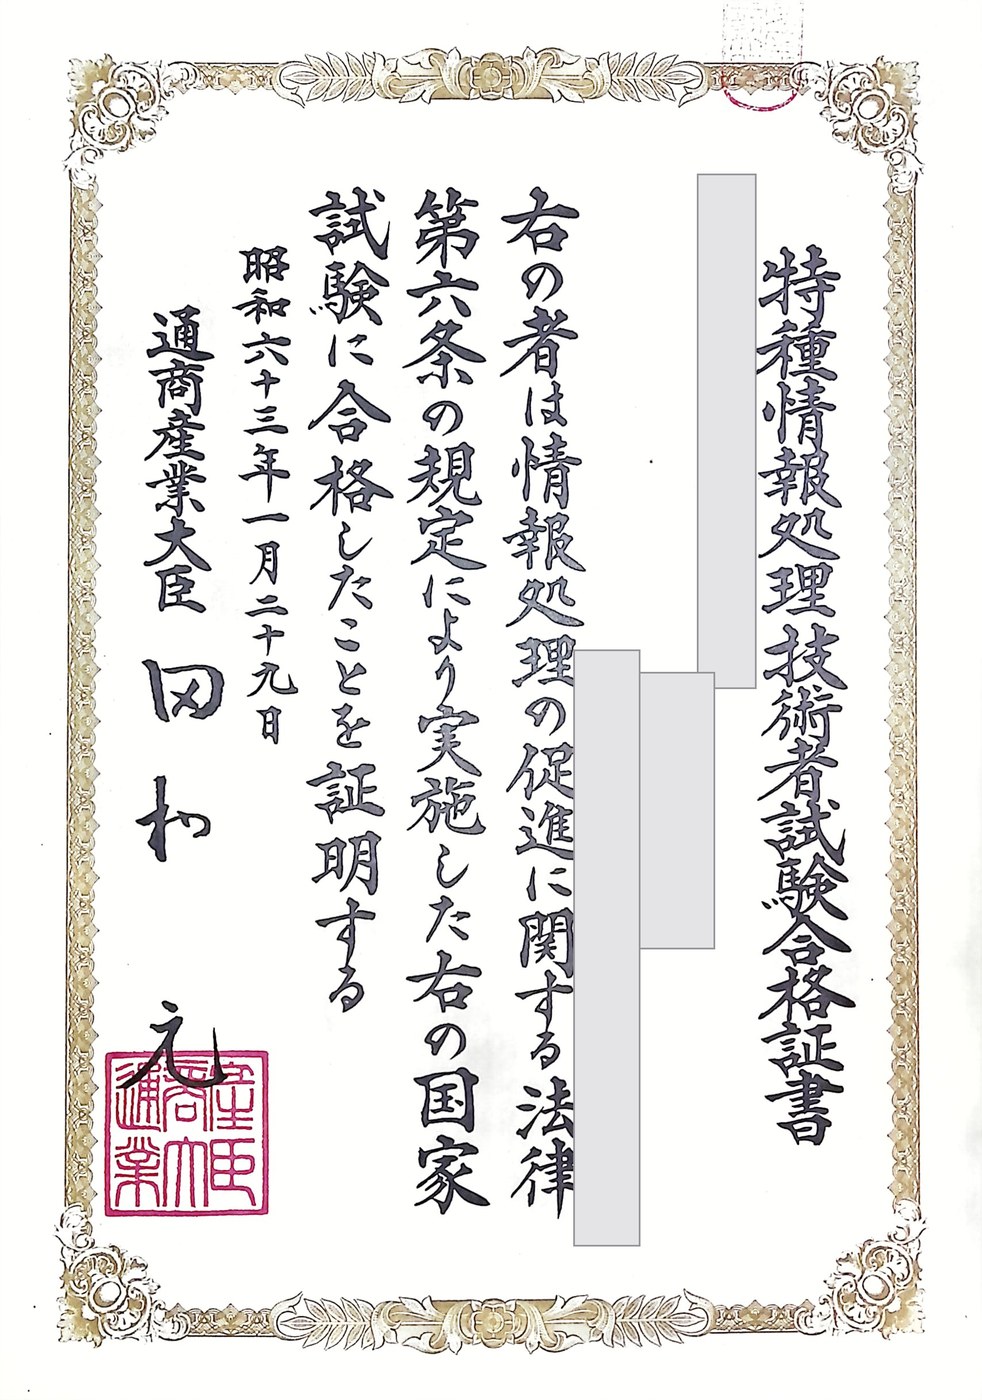 特種情報処理技術者試験合格証書
右の者は情報処理の促進に関する法律
第六条の規定により実施した右の国家
試験に合格したことを証明する
昭和六十三年一月二十九日
通商産業大臣 田村 元
通商産業大臣